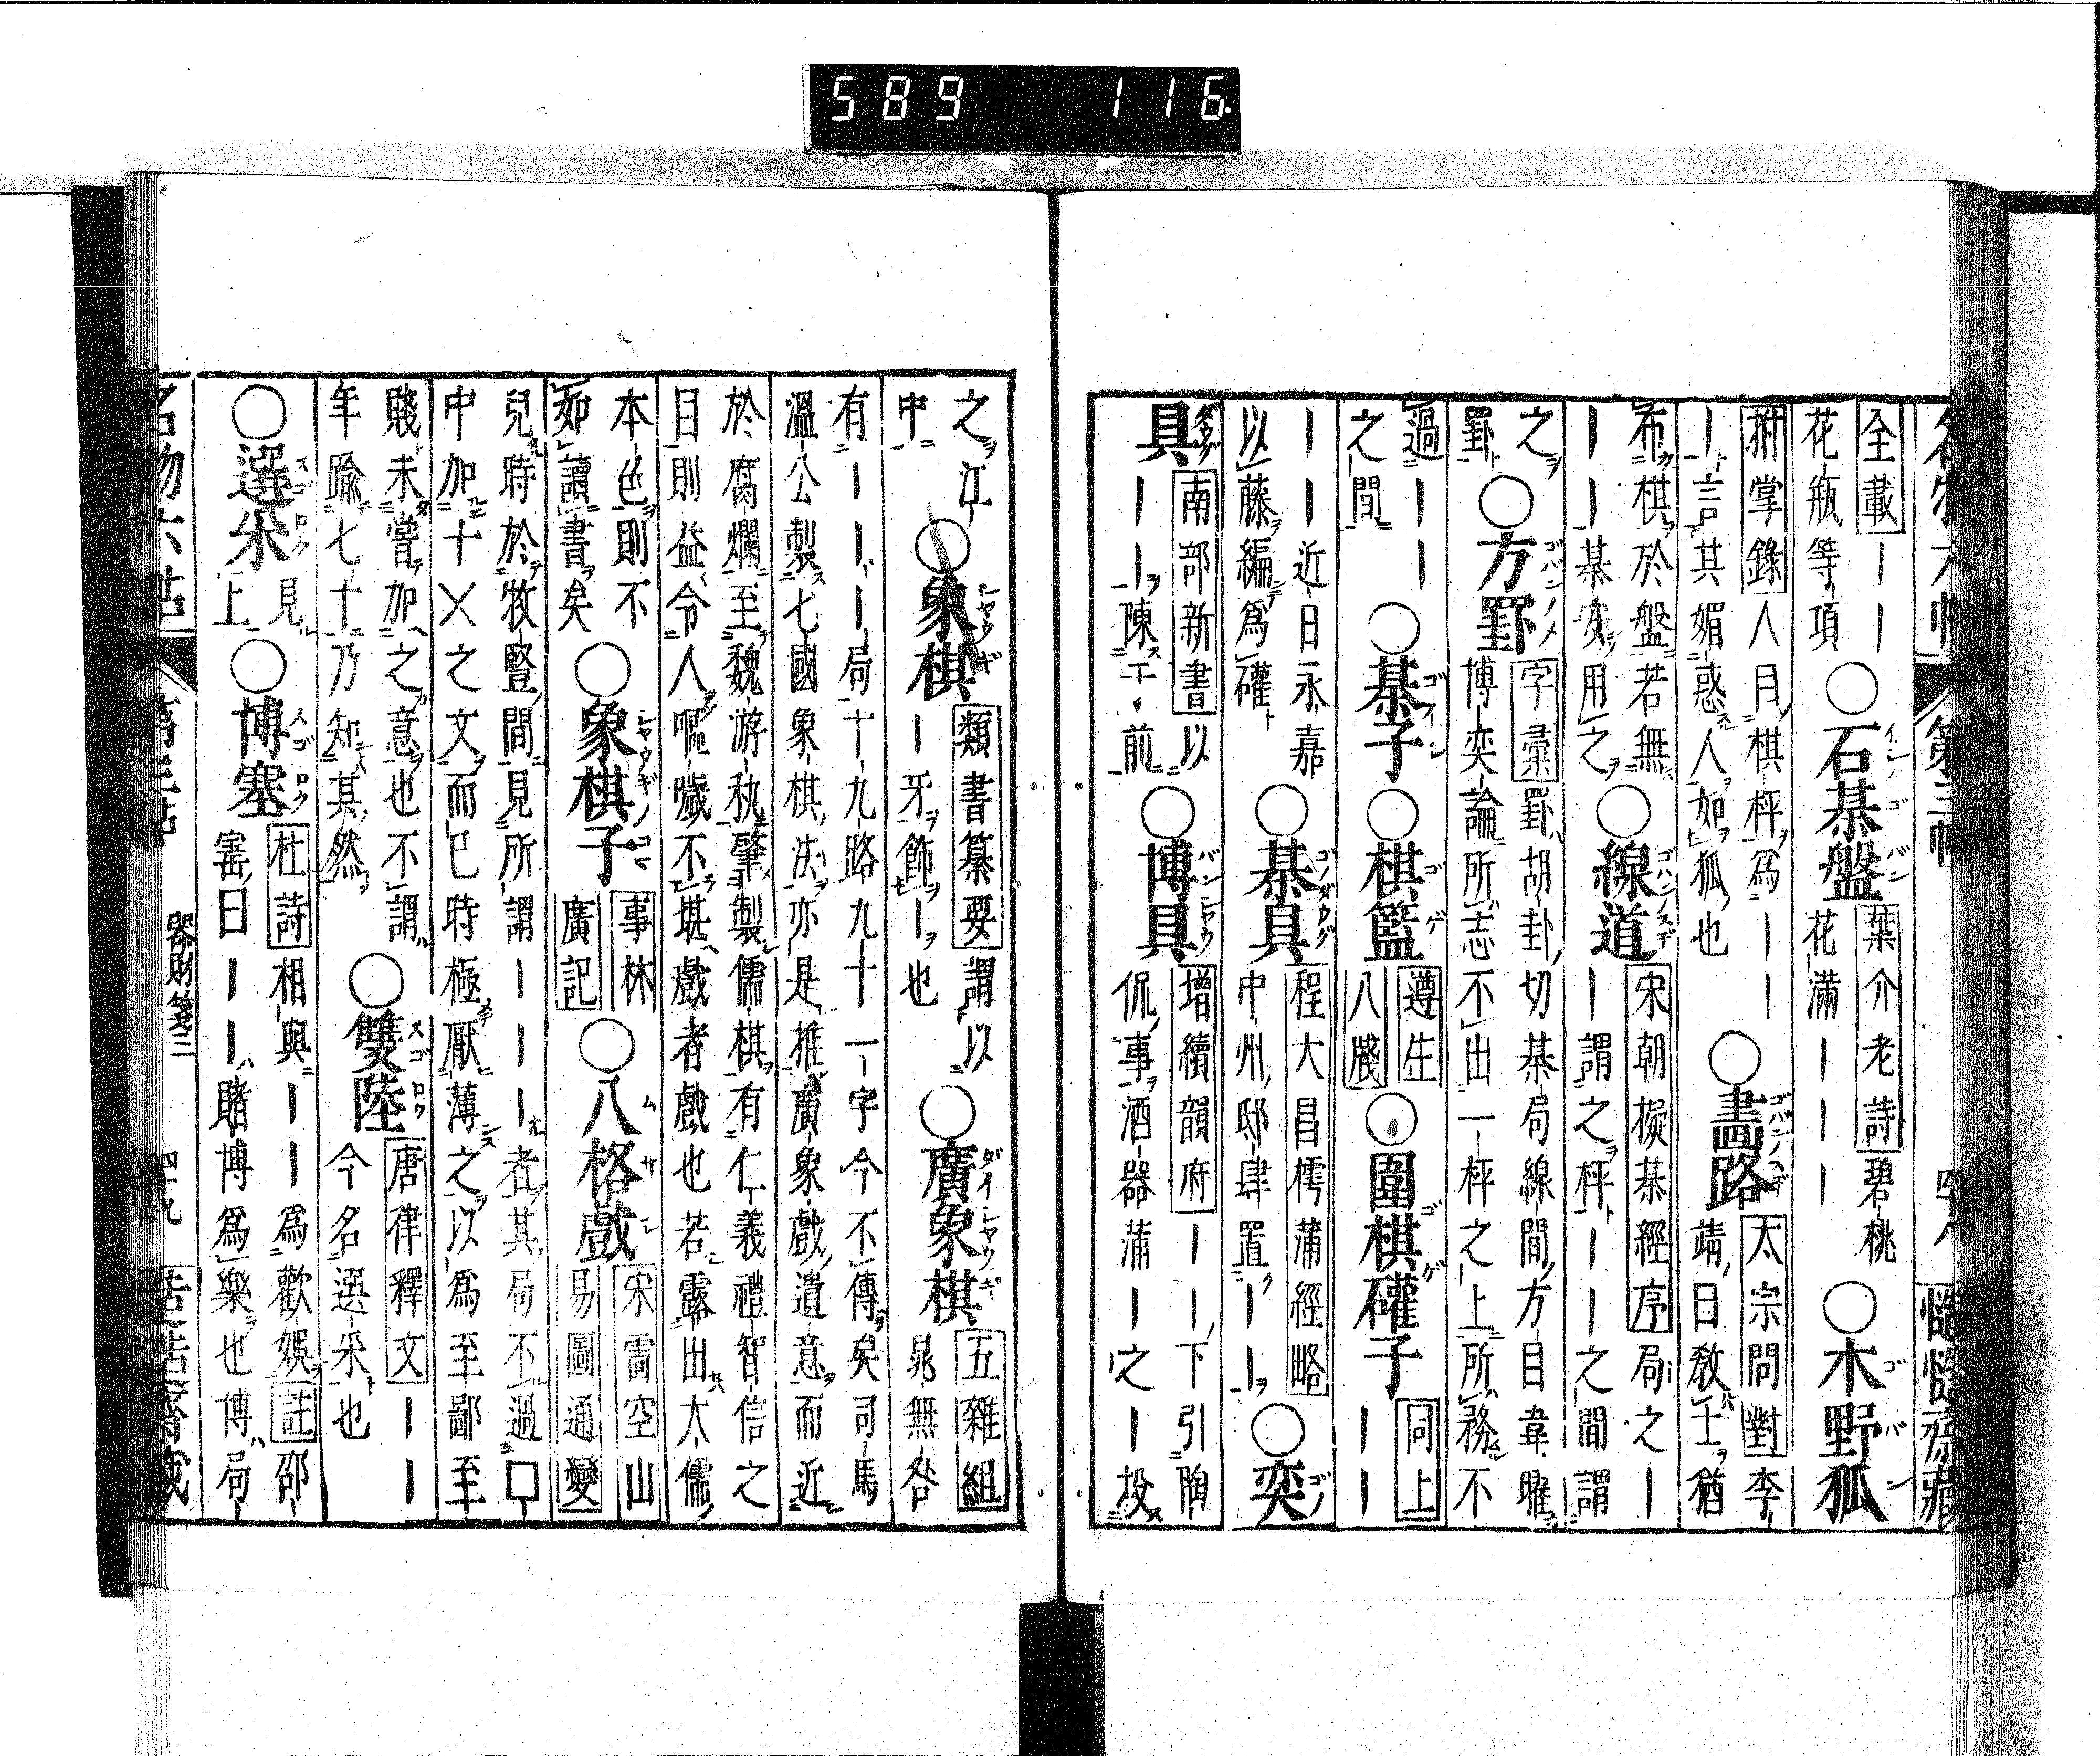 589 116
名物六帖 第三帖 四十八
全載｜｜
花瓶等項
○石碁盤 葉介老詩 碧桃
花滿｜｜｜
○木野狐
拊掌錄 人目棋枰爲｜｜
｜言其媚惑人如狐也
○畵路 太宗問對 李
靖曰敎士猶
布棋於盤若無
｜｜碁安用之
○線道 宋朝擬碁經序 局之｜
｜謂之枰｜｜之間謂
之
罫
○方罫 字彙 罫胡卦切碁局線間方目韋曜
博奕論所志不出一枰之上所務不
過｜｜
之間
○碁子
○棋籃 遵生
八牋
○圍棋礶子 同上
｜｜
｜｜近日永嘉
以藤編爲礶
○碁具 程大昌樗蒲經略
中州邸肆置｜｜
○奕
具 南部新書 以
｜｜陳于前
○博具 增續韻府 ｜｜下引陶
侃事酒器蒲｜之｜投
之江
中
○象棋 類書纂要 謂以
｜牙飾｜也
○廣象棋 五雜組
晁無咎
有｜｜｜局十九路九十一字今不傳矣司馬
溫公製七國象棋法亦是推廣象戲遺意而近
於腐爛至魏游執肇製儒棋有仁義禮智信之
目則益令人嘔噦不堪戲者戲也若露出太儒
本色則不
如讀書矣
○象棋子 事林
廣記
○八格戲 宋雷空山
易圖通變
兒時於牧豎間見所謂｜｜｜者其局不過口
中加十乂之文而已時極厭薄之以爲至鄙至
賤未嘗加之意也不謂
年踰七十乃知其然
○雙陸 唐律釋文 ｜｜
今名選采也
○選采 見
上
○博塞 杜詩 相與｜｜爲歡娛 註 邵
寚曰｜｜賭博爲樂也博局
名物六帖 第三帖 器財箋三 四十九